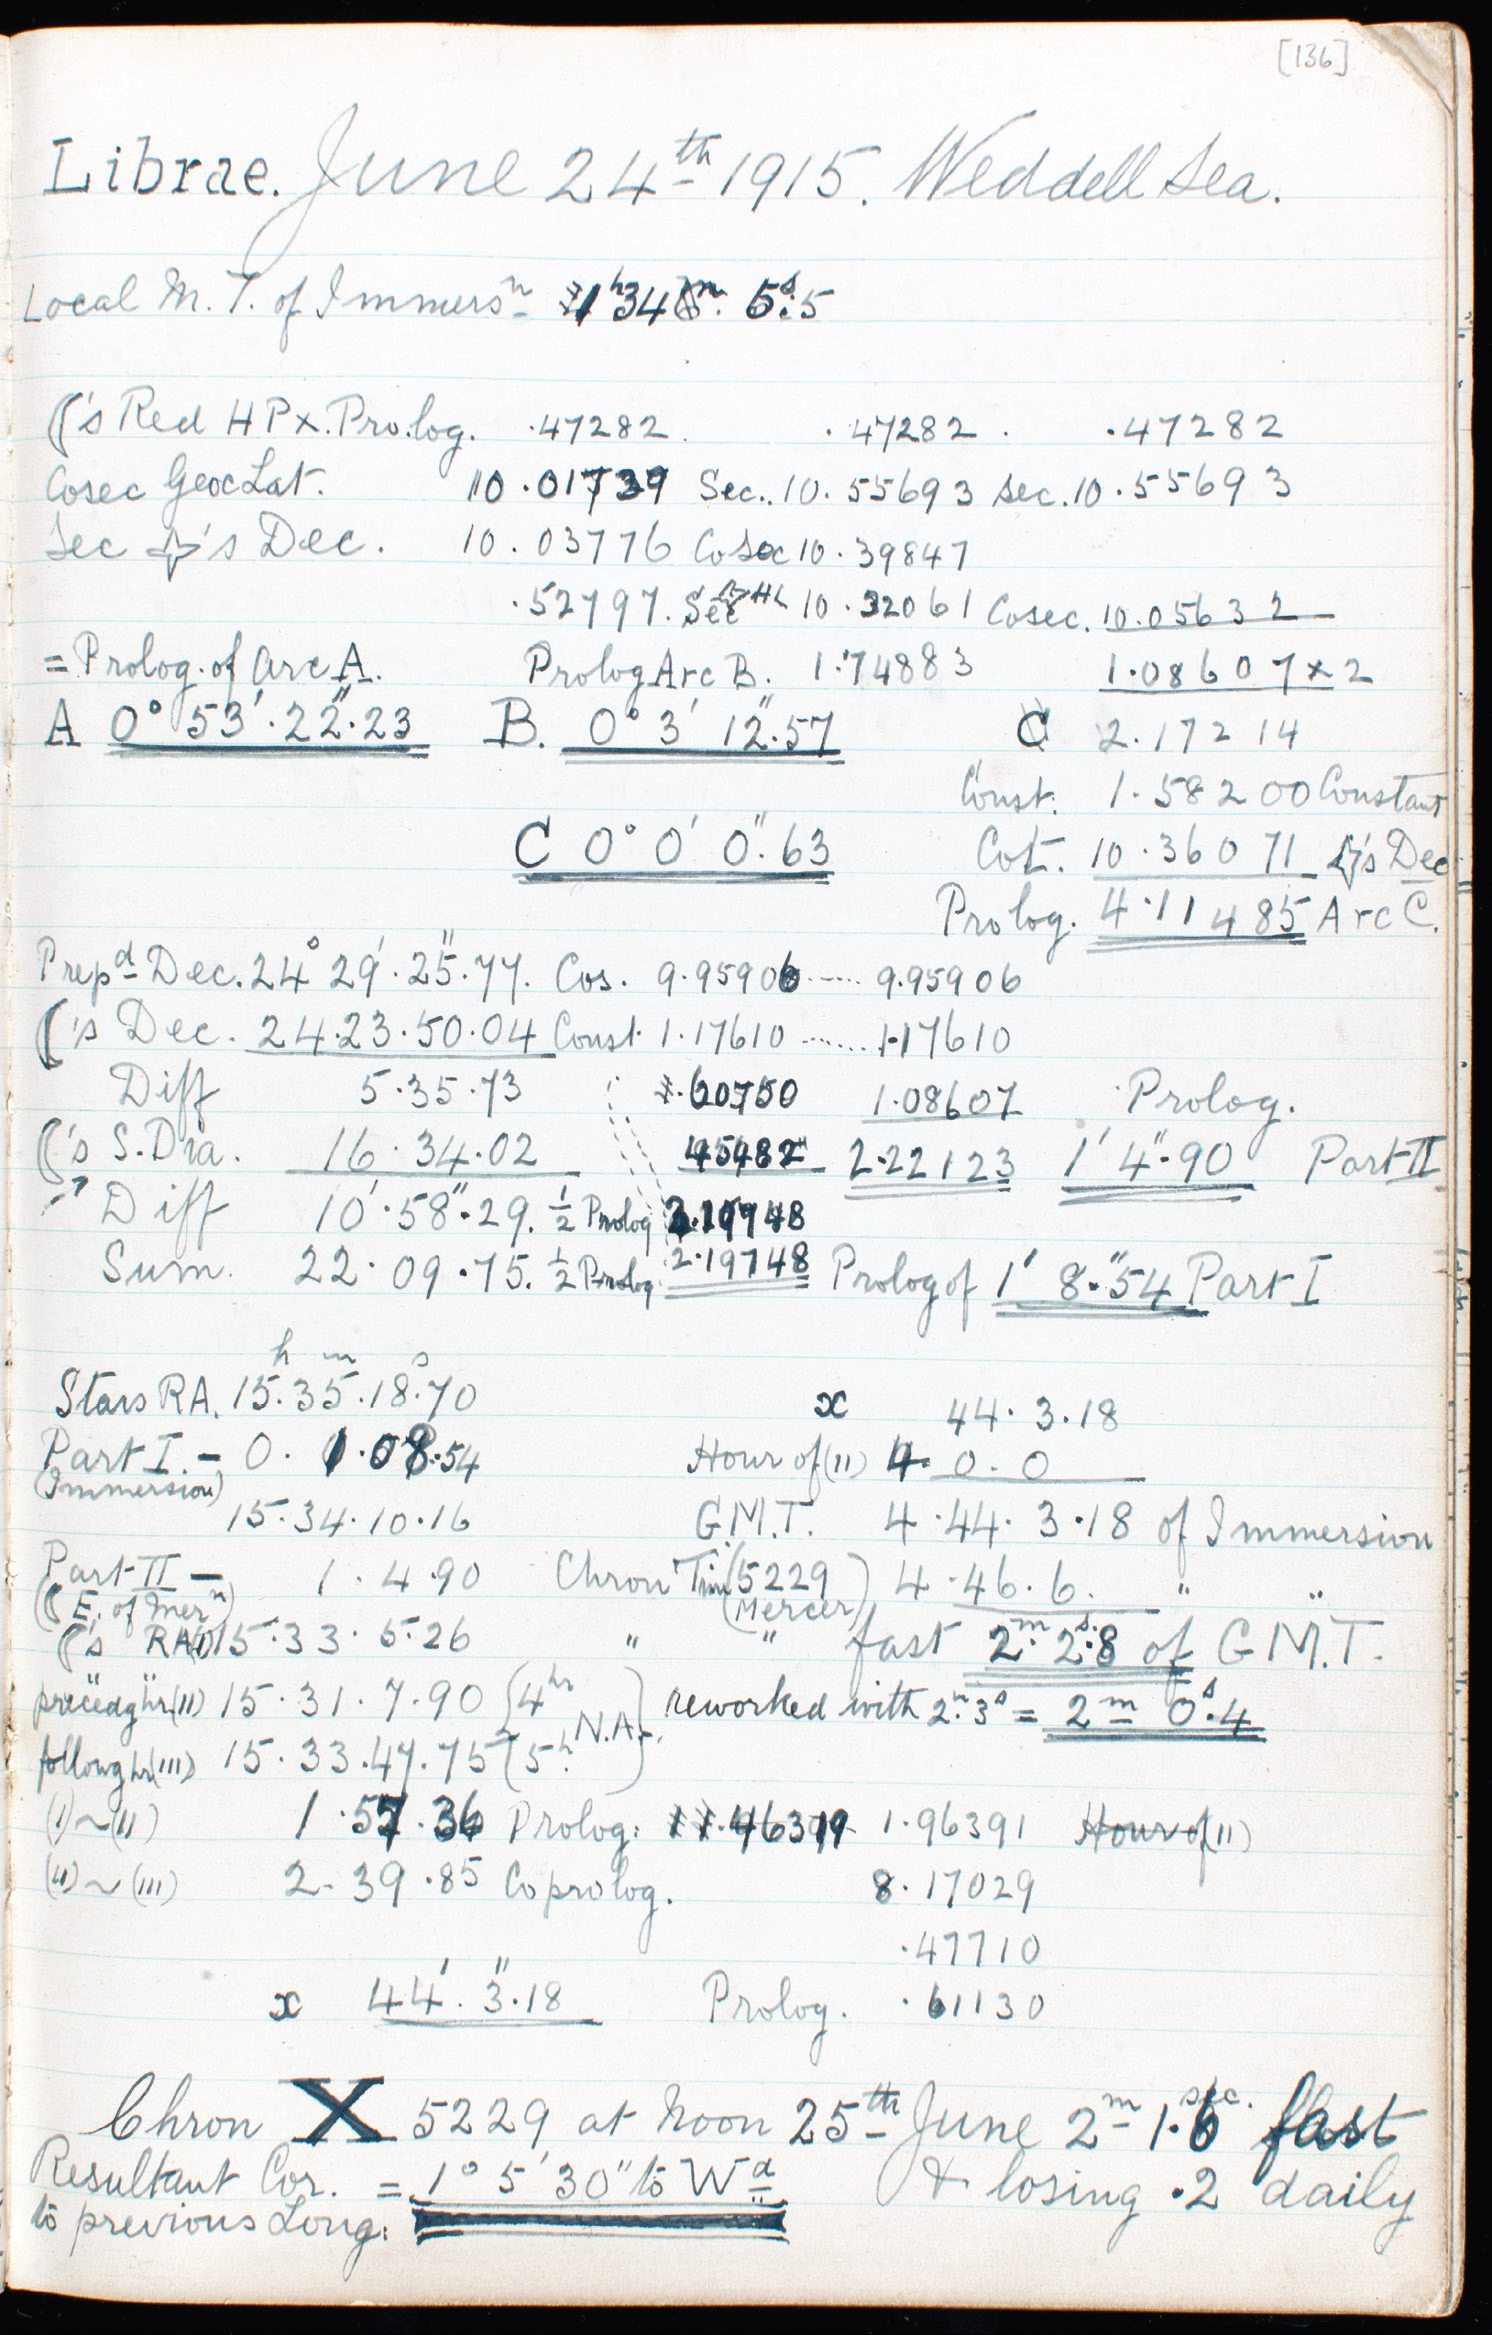 [136]
Librae. June 24th 1915. Weddell Sea.
Local M. T. of Immersn 1h 34m. 5s.5
☾'s Red H P x. Pro.log. .47282. .47282. .47282
Cosec Geoc Lat. 10.01739 Sec.. 10.55693 Sec. 10.55693
Sec ☆'s Dec. 10.03776 Cosec 10.39847
.52797. Sec ☆HL 10.32061 Cosec. 10.05632
= Prolog. of arc A. Prolog Arc B. 1.74883 1.08607 x 2
A 0° 53'. 22".23 B. 0° 3' 12".57 C 2.17214
Const. 1.58200 Constant
C 0° 0' 0".63 Cot. 10.36071 ☆'s Dec
Prolog. 4.11485 Arc C.
Prepd Dec. 24° 29'. 25".77. Cos. 9.95906 ..... 9.95906
☾'s Dec. 24.23.50.04 Const. 1.17610 ....... 1.17610
Diff 5.35.73 .60750 1.08607 Prolog.
☾'s S. Dia. 16.34.02 45482 2.22123 1' 4".90 Part II
Diff 10'.58".29. ½ Prolog 2.19748
Sum. 22.09.75. ½ Prolog 2.19748 Prolog of 1' 8".54 Part I
h m s
Stars RA. 15.35.18.70 x 44.3.18
Part I. – 0. 1.08.54 Hour of (II) 4. 0.0
(Immersion)
15.34.10.16 G.M.T. 4.44.3.18 of Immersion
Part II – 1.4.90 Chron Tim (5229 Mercer) 4.46.6. " "
(☾ E. of Mern)
☾'s RA (I) 15.33.5.26 " " fast 2m. 2s.8 of G M.T.
precedg hr (II) 15.31.7.90 (4hr N.A. reworked with 2m. 3s = 2m 0s.4
followg hr (III) 15.33.47.75 (5h.
(I) ~ (II) 1.57.36 Prolog: 46319 1.96391 Hour of (II)
(II) ~ (III) 2.39.85 Coprolog. 8.17029
.47710
x 44'. 3".18 Prolog. .61130
Chron X 5229 at Noon 25th June 2m 1.6 sec. fast
Resultant Cor. = 1° 5' 30" to Wd & losing .2 daily
to previous Long: